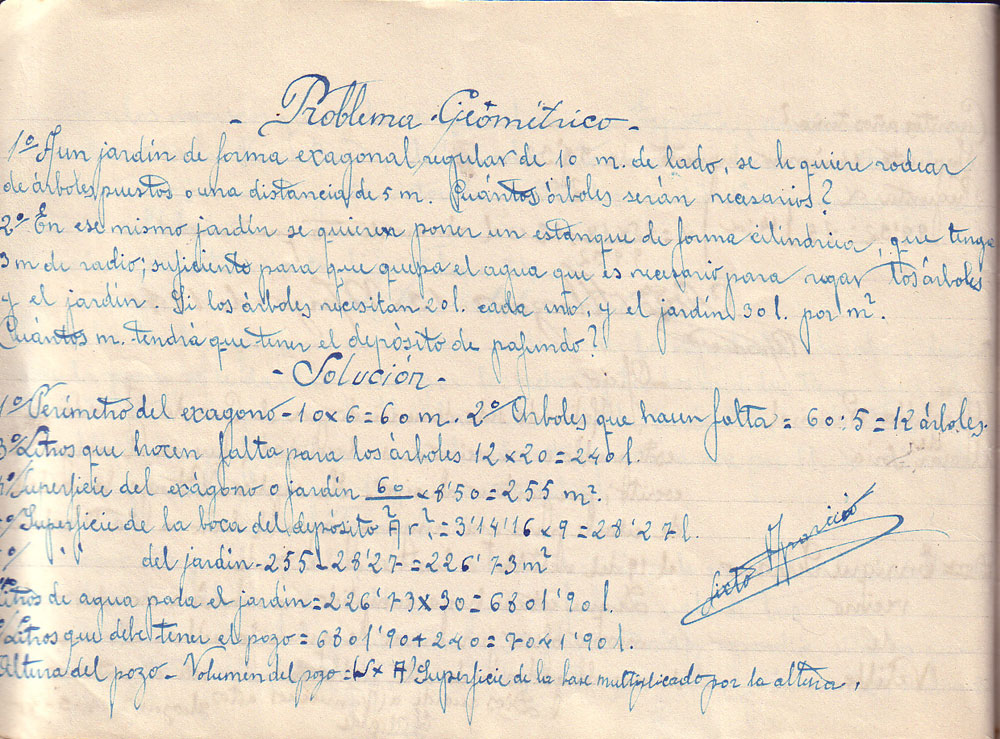 - Problema Geométrico -
1º A un jardín de forma exagonal regular de 10 m. de lado, se le quiere rodear
de árboles puestos a una distancia de 5 m. Cuántos árboles serán necesarios?
2º En ese mismo jardín se quieren poner un estanque de forma cilíndrica, que tenga
3 m de radio; suficiente para que quepa el agua que es necesario para regar los árboles
y el jardín. Si los árboles necesitan 20 l. cada uno y el jardín 30 l. por m².
Cuántos m. tendrá que tener el depósito de pafundo?
- Solución -
1º Perímetro del exagono - 10 x 6 = 60 m. 2º Arboles que hacen falta = 60 : 5 = 12 árboles.
3º Litros que hocen falta para los árboles 12 x 20 = 240 l.
Superficie del exágono o jardín 60 x 8'50 = 255 m².
Superficie de la boca del depósito r² = 3'14'16 x 9 = 28'27 l.
" " del jardín - 255 - 28'27 = 226'73 m²
Litros de agua para el jardín = 226'73 x 30 = 6801'90 l.
Litros que debe tener el pozo = 6801'90 + 240 = 7041'90 l.
Altura del pozo - Volumen del pozo = (S x A) Superficie de la base multiplicado por la altura.
Sixto Aparicio